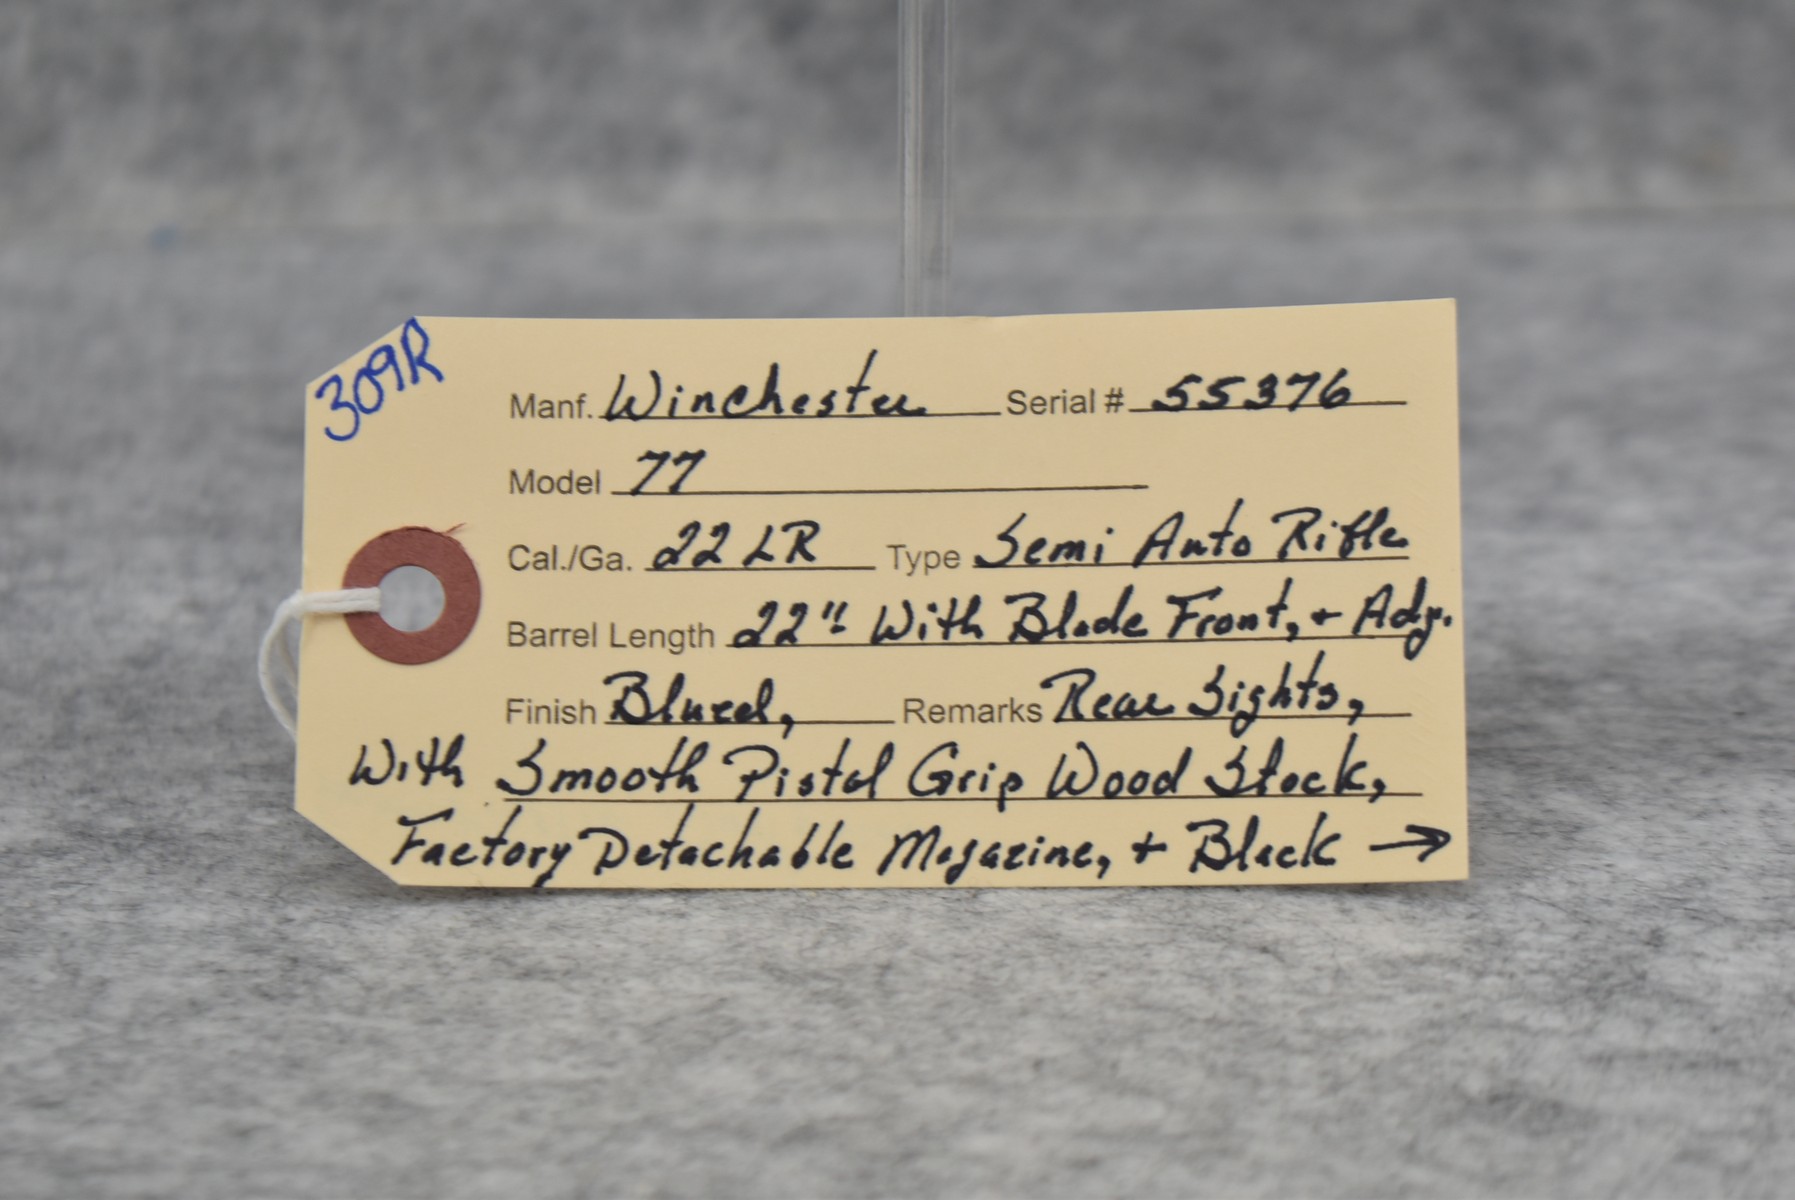 309R
Manf. Winchester Serial # 55376
Model 77
Cal./Ga. 22 LR Type Semi Auto Rifle
Barrel Length 22" With Blade Front, + Adj.
Finish Blued, Remarks Rear Sights,
With Smooth Pistol Grip Wood Stock,
Factory Detachable Magazine, + Black →